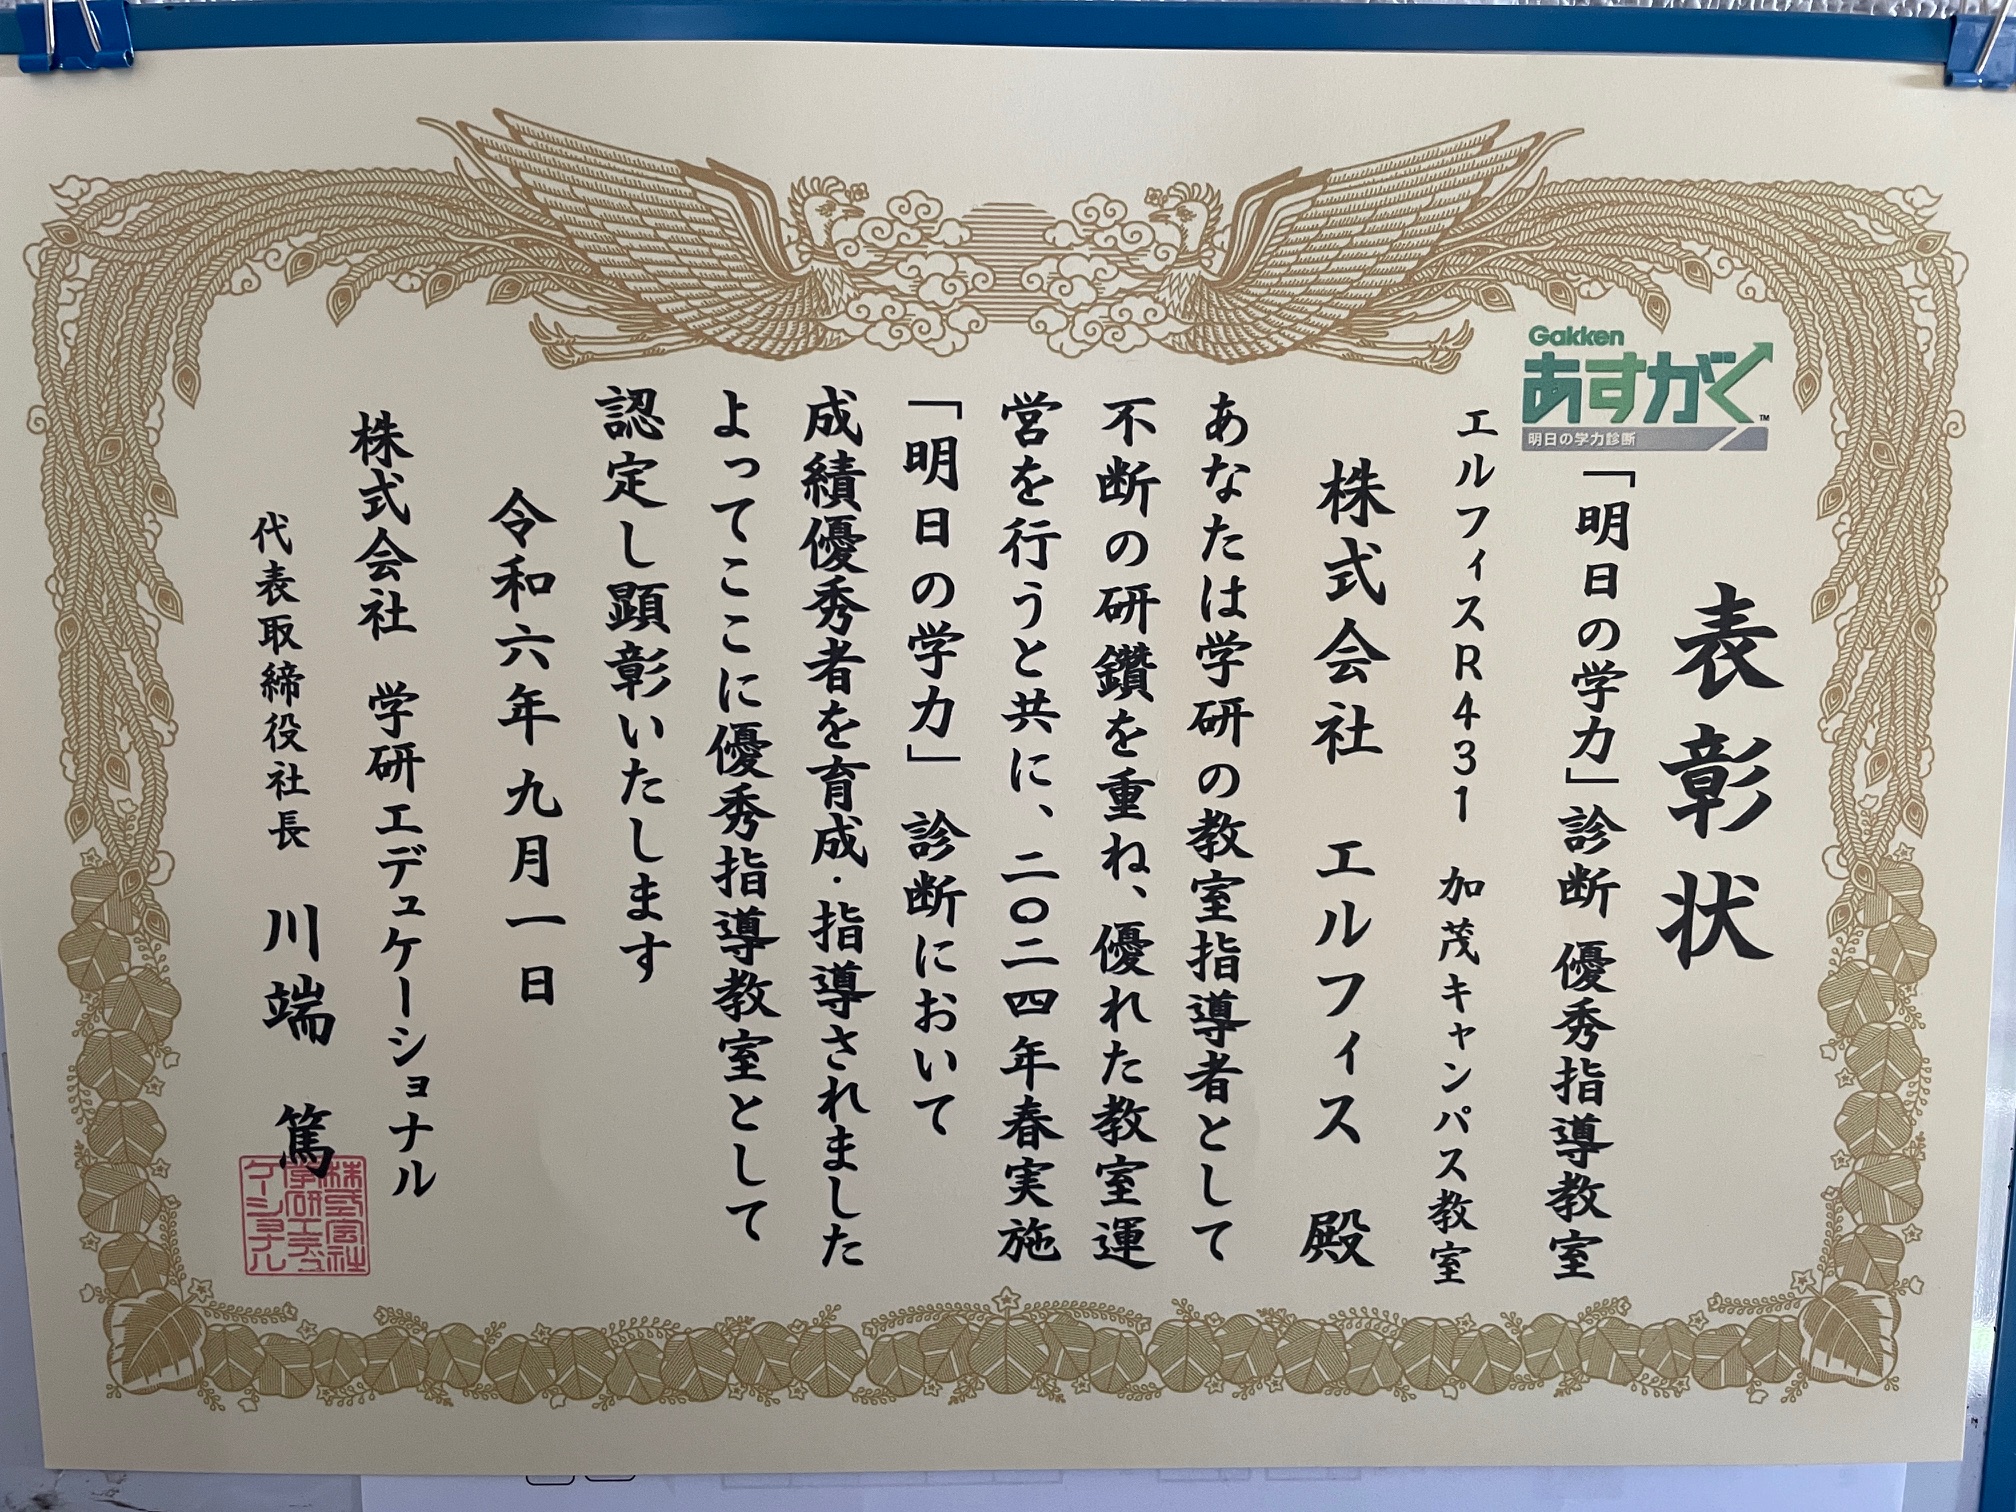 Gakken
あすがく™
明日の学力診断
表彰状
「明日の学力」診断 優秀指導教室
エルフィスR431 加茂キャンパス教室
株式会社 エルフィス 殿
あなたは学研の教室指導者として
不断の研鑽を重ね、優れた教室運
営を行うと共に、二〇二四年春実施
「明日の学力」診断において
成績優秀者を育成・指導されました
よってここに優秀指導教室として
認定し顕彰いたします
令和六年九月一日
株式会社 学研エデュケーショナル
代表取締役社長 川端 篤
株式会社
学研エデュ
ケーショナル